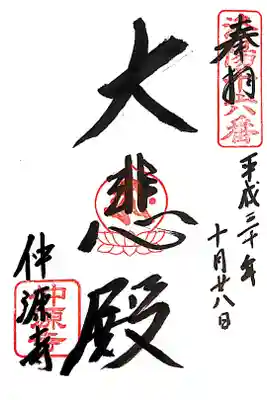 奉拝
洛陽十六番
平成三十年
十月廿八日
大悲殿
仲源寺
仲源寺